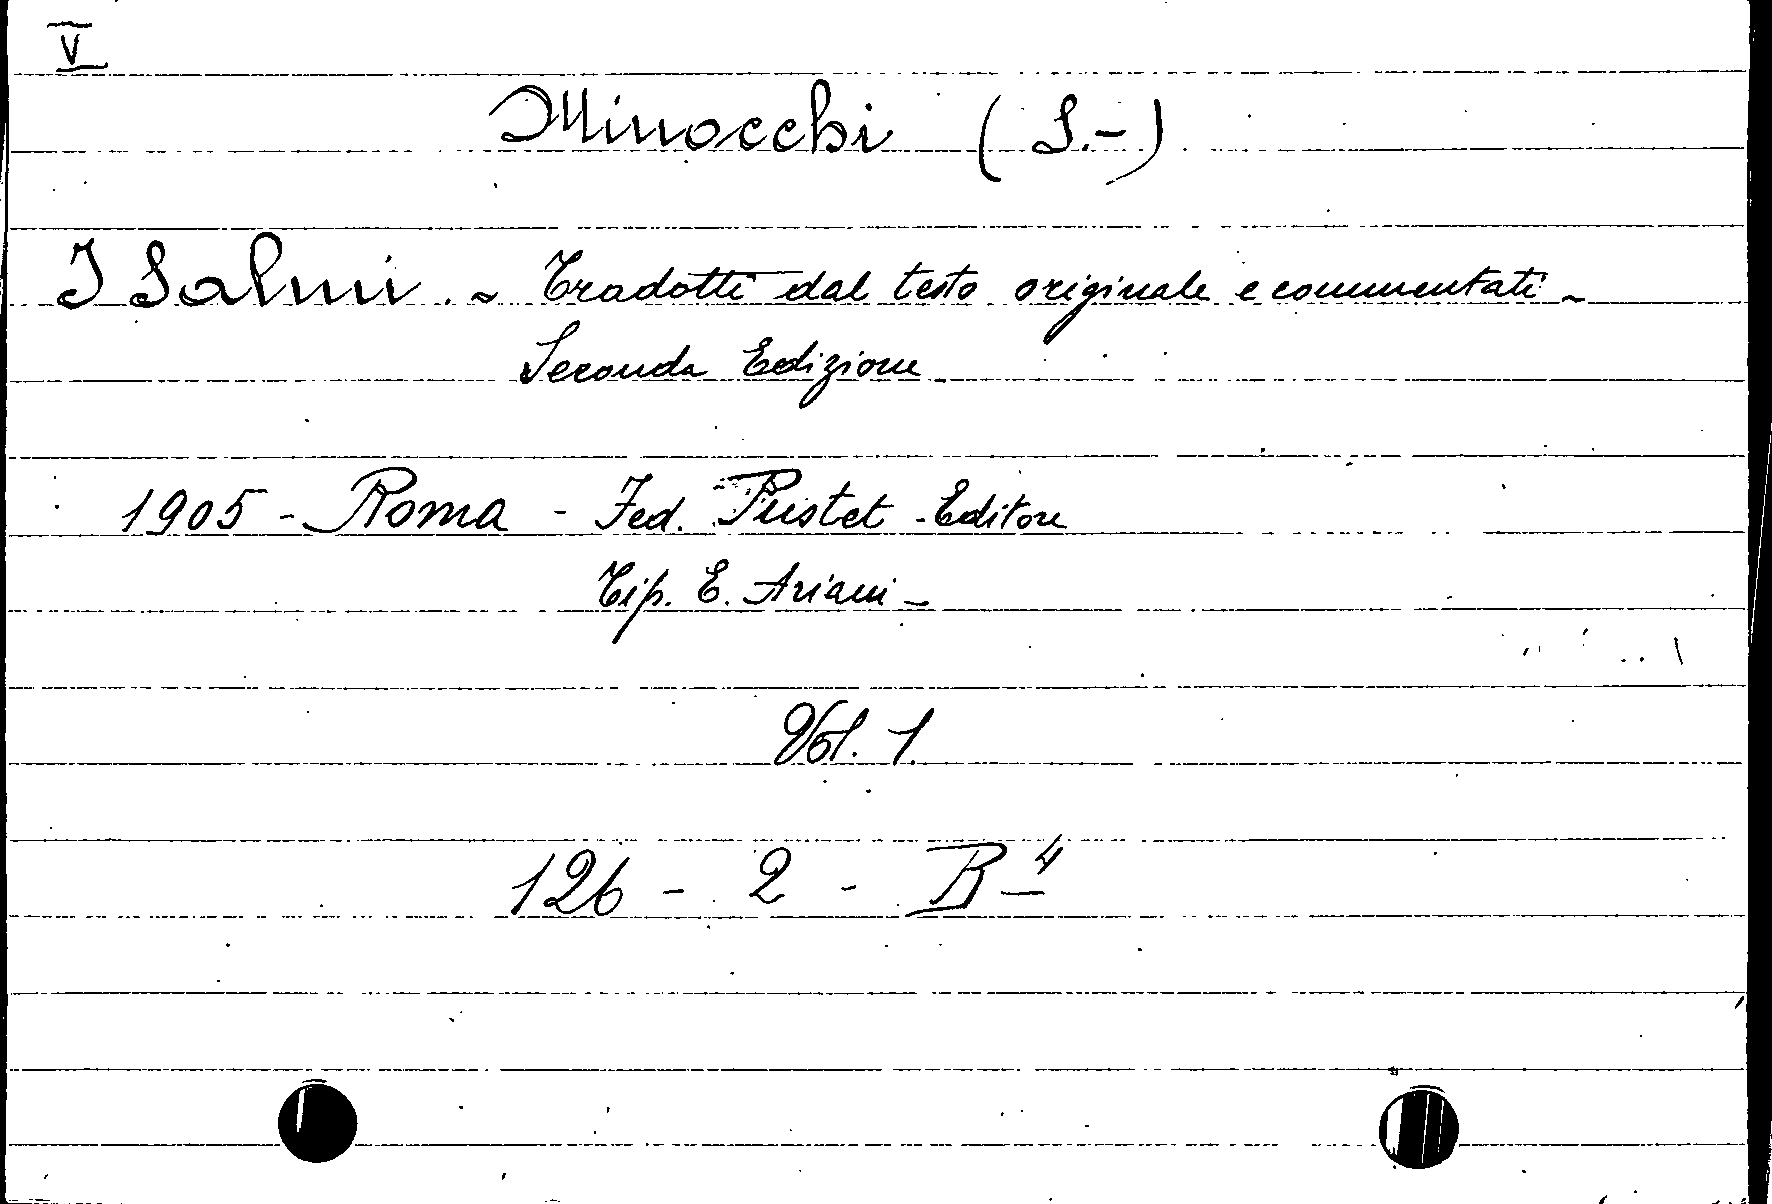 V
Minocchi (S.-)
I Salmi. - Tradotti dal testo originale e commentati -
Seconda Edizione
1905 - Roma - Fed. Pustet - Editore
Tip. E. Ariani -
Vol. 1.
126 - 2 - B-4